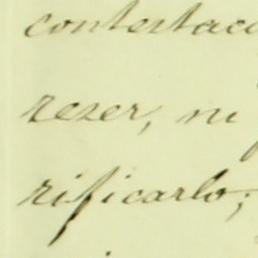 contestac
rezer, ni
rificarlo;